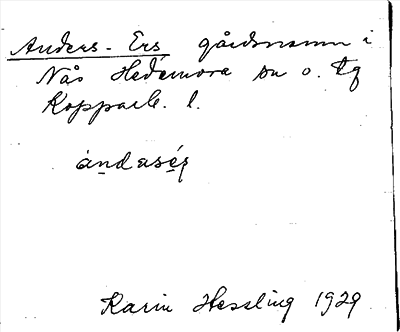 Anders-Ers gårdsnamn i
Nås Hedemora sn o. tg
Kopparb. l.
ándasés
Karin Hessling 1929